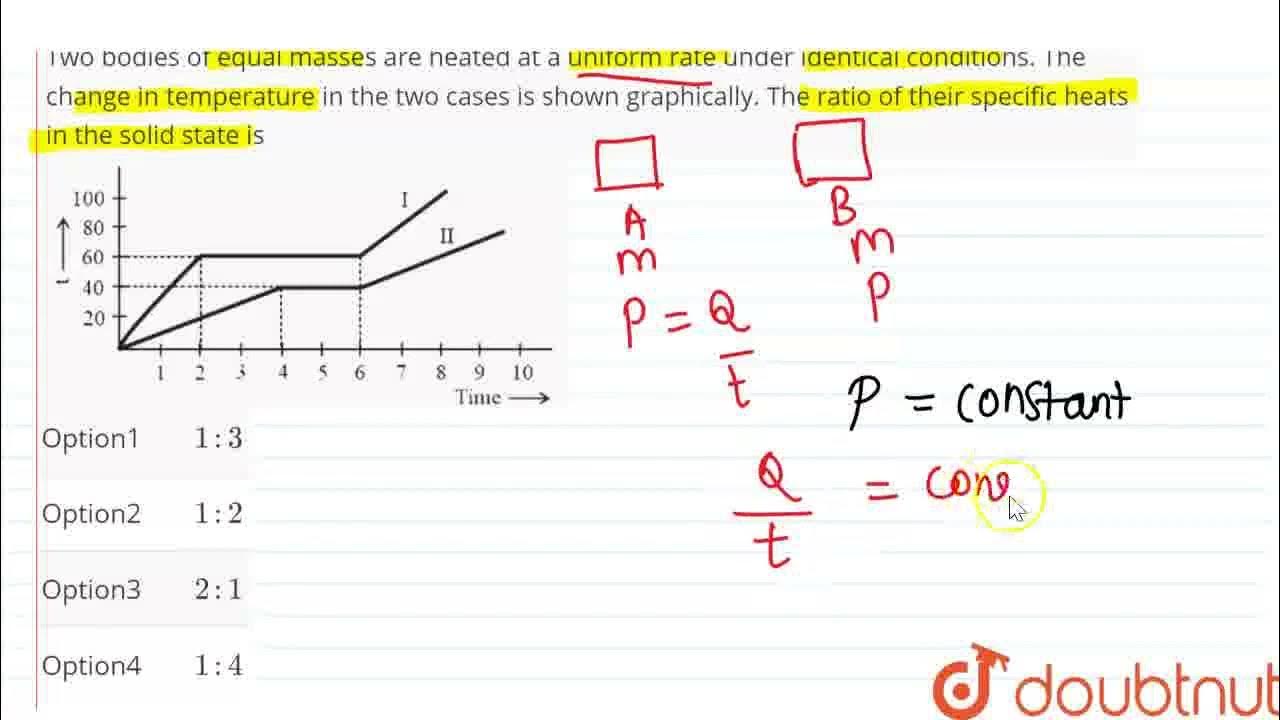 Two bodies of equal masses are heated at a uniform rate under identical conditions. The
change in temperature in the two cases is shown graphically. The ratio of their specific heats
in the solid state is
100
80
60
40
20
t
I
II
1 2 3 4 5 6 7 8 9 10
Time
A
m
P = Q
t
B
m
P
P = constant
Q = cons
t
Option1 1 : 3
Option2 1 : 2
Option3 2 : 1
Option4 1 : 4
doubtnut